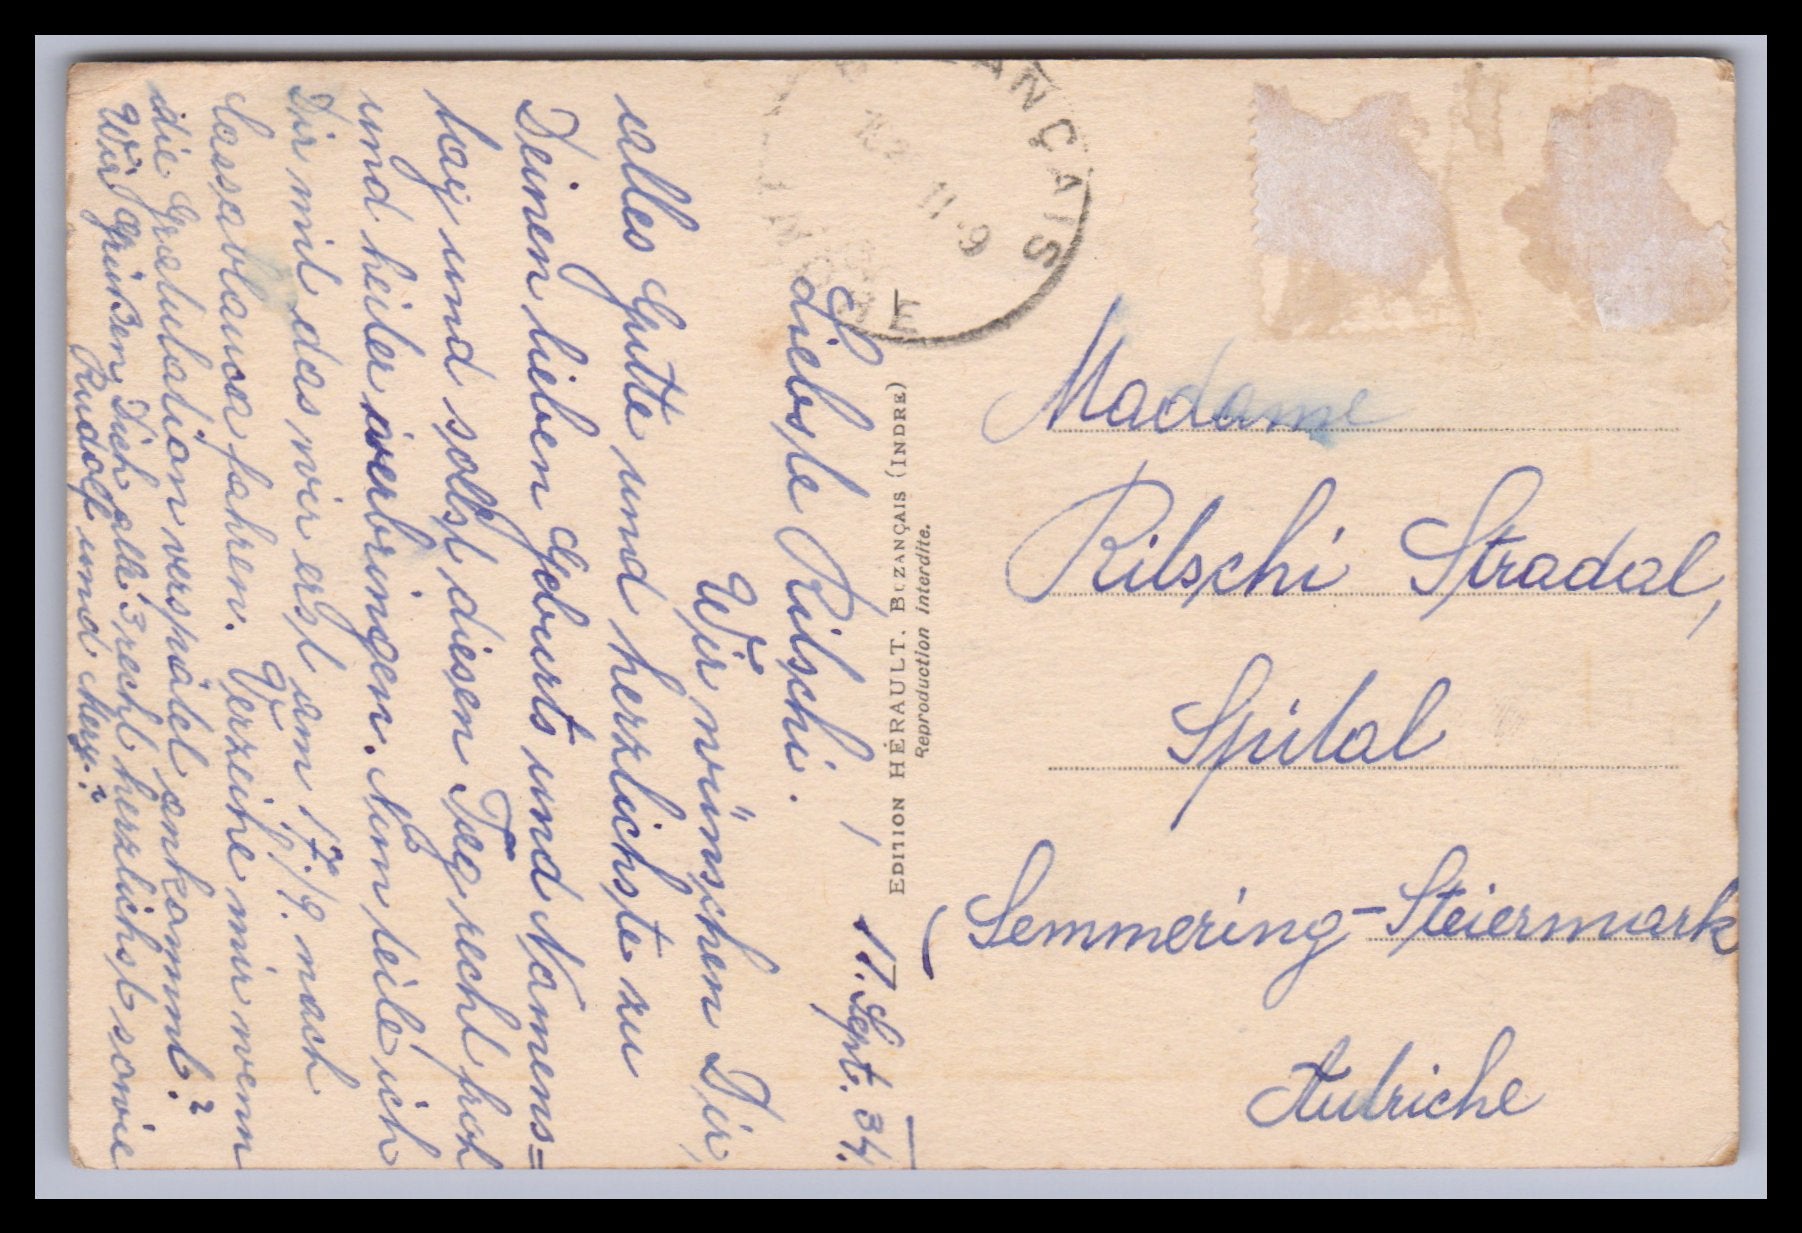 17. Sept. 34.
Liebste Ritschi.
Wir wünschen Dir,
alles Gutte und herzlichste zu
Deinen lieben Geburts und Namens=
tag und sollst diesen Tag recht froh
und heiter verbringen. Nim teile ich
Dir mit das wir erst am 17./9. nach
Cassablanca fahren. Verzeihe mir wenn
die Gratulation verspätet ankommt.
Wir grüßen Dich alle 3 recht herzlichst sowie
Rudolf und
EDITION HÉRAULT. BUZANÇAIS (INDRE)
Reproduction interdite.
BUZANÇAIS
INDRE
Madame
Ritschi Stradal,
Spital
Semmering-Steiermark
Autriche